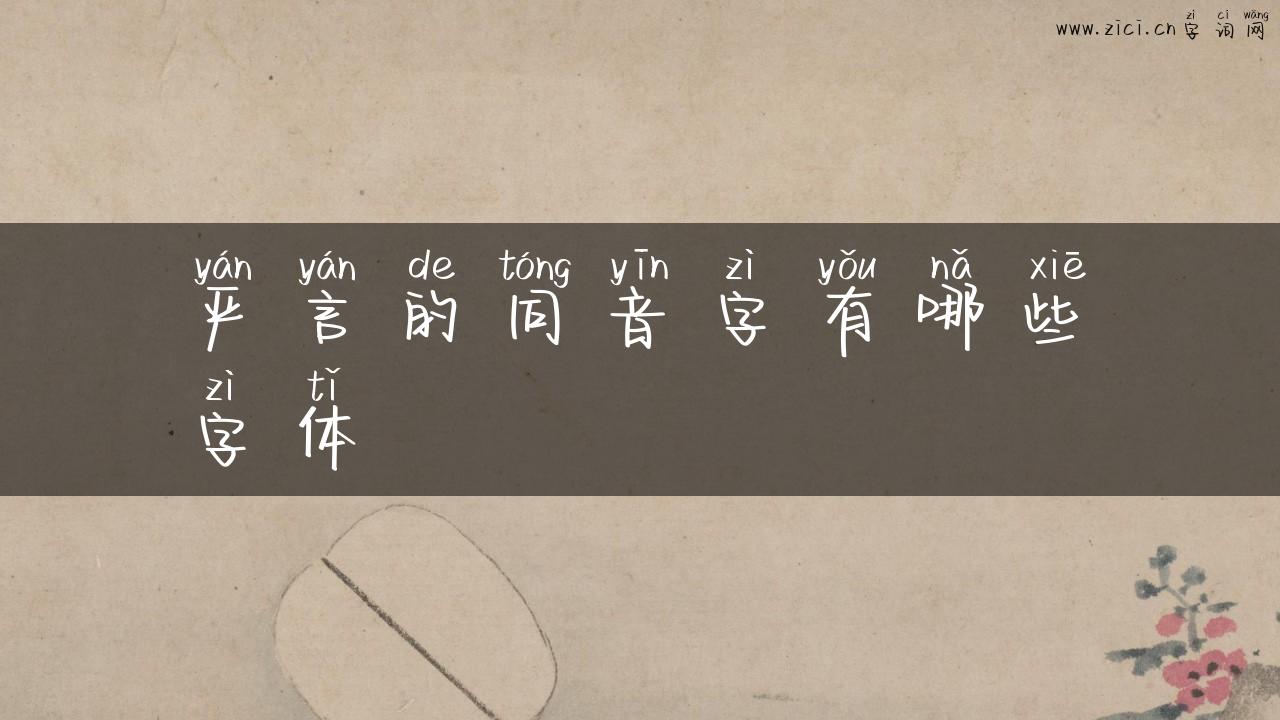 zì cí wǎng
www.zici.cn 字 词 网
yán yán de tóng yīn zì yǒu nǎ xiē
严 言 的 同 音 字 有 哪 些
zì tǐ
字 体